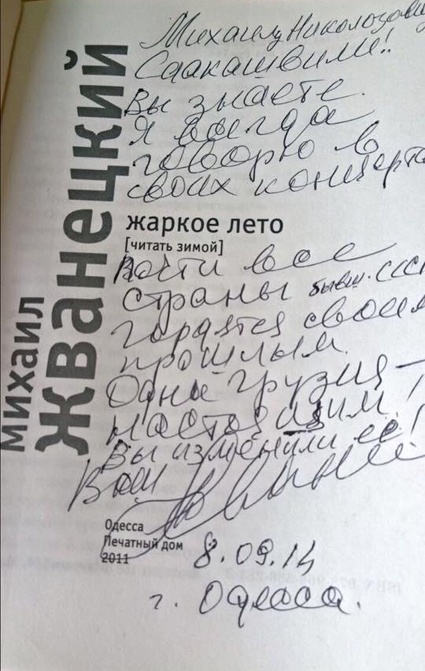 Михаилу Николозовичу
Саакашвили!!
Вы знаете.
Я всегда
говорю в
своих концертах
михаил
Жванецкий
жаркое лето
[читать зимой]
Почти все
страны бывш. ССС
гордятся своим
прошлым.
Одна Грузия –
настоящим!
Вы изменили её!
Ваш
Одесса
Печатный дом
2011
8.09.14
г. Одесса.